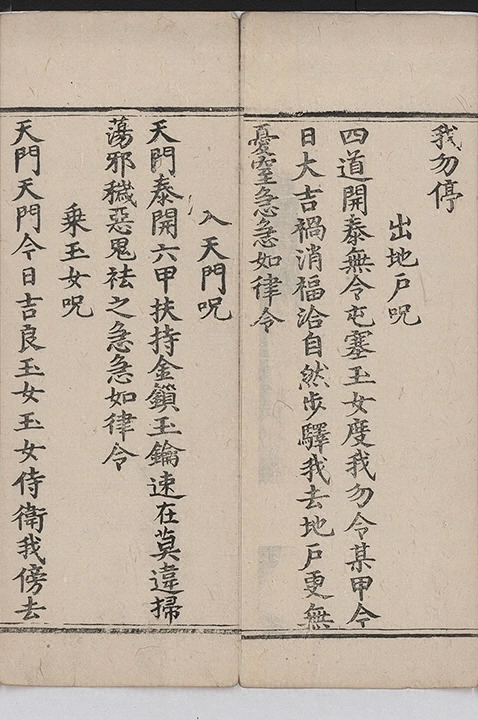 我勿停
出地戶呪
四道開泰無令屯塞玉女度我勿令某甲今
日大吉禍消福洽自然步驛我去地戶更無
憂窒急急如律令
入天門呪
天門泰開六甲扶持金鎖玉鑰速在莫違掃
蕩邪穢惡鬼袪之急急如律令
乘玉女呪
天門天門今日吉良玉女玉女侍衛我傍去